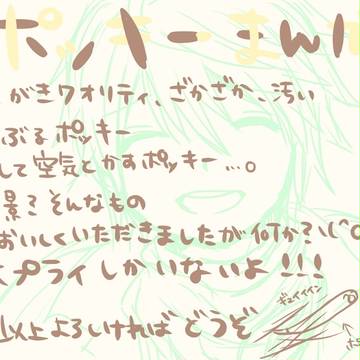 ポッキーまん
がきクオリティ、ざかざか、汚い
ぶるポッキー
して空気とかすポッキー...。
景?そんなもの
おいしくいただきましたが何か?\(^o
スプライしかいないよ!!!
以上よろしければどうぞ
ギュイイイン